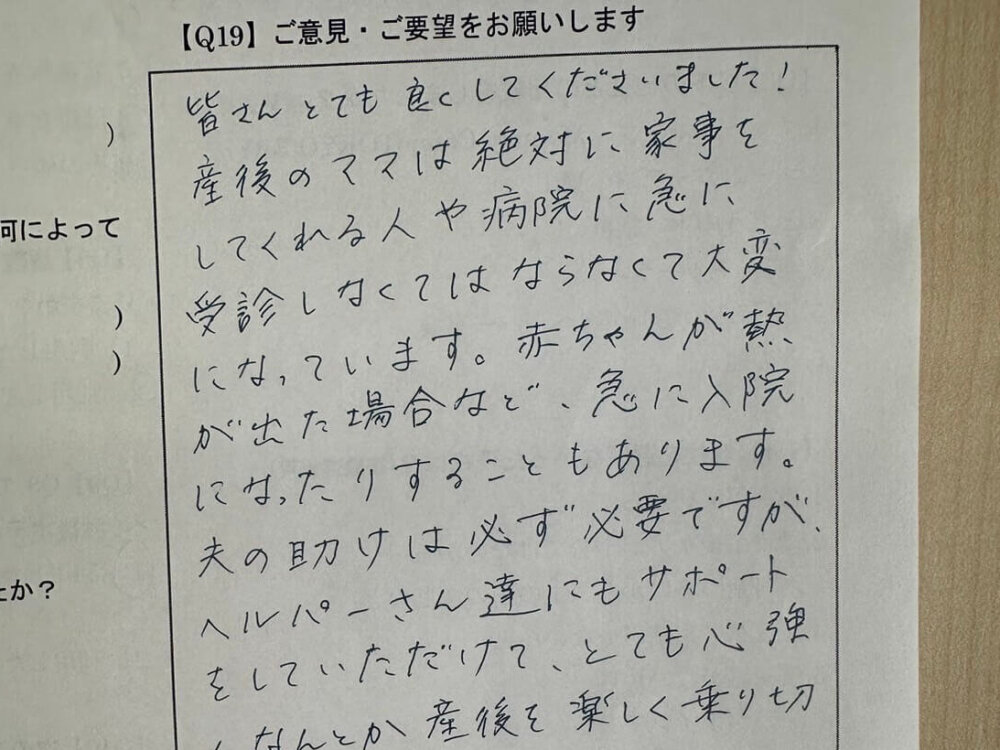 【Q19】ご意見・ご要望をお願いします
皆さんとても良くしてくださいました！
産後のママは絶対に家事を
してくれる人や病院に急に
受診しなくてはならなくて大変
になっています。赤ちゃんが熱
が出た場合など、急に入院
になったりすることもあります。
夫の助けは必ず必要ですが、
ヘルパーさん達にもサポート
をしていただけて、とても心強
くなんとか産後を楽しく乗り切
)
何によって
)
)
たか？